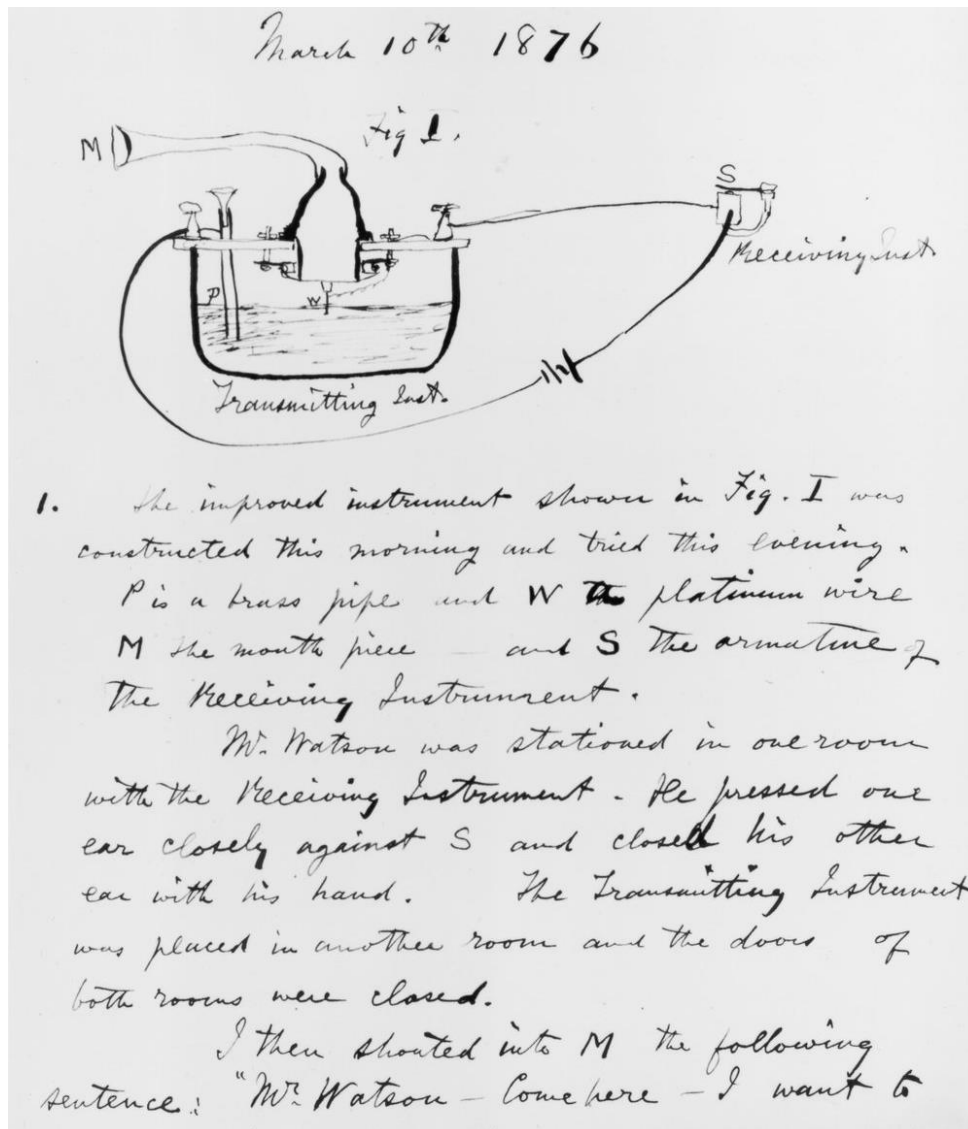 March 10th 1876
Fig I.
M
S
Receiving Inst.
P
W
Transmitting Inst.
1. The improved instrument shown in Fig. I was
constructed this morning and tried this evening.
P is a brass pipe and W the platinum wire
M the mouth piece — and S the armature of
the Receiving Instrument.
Mr. Watson was stationed in one room
with the Receiving Instrument. He pressed one
ear closely against S and closed his other
ear with his hand. The Transmitting Instrument
was placed in another room and the doors of
both rooms were closed.
I then shouted into M the following
sentence: "Mr. Watson — Come here — I want to